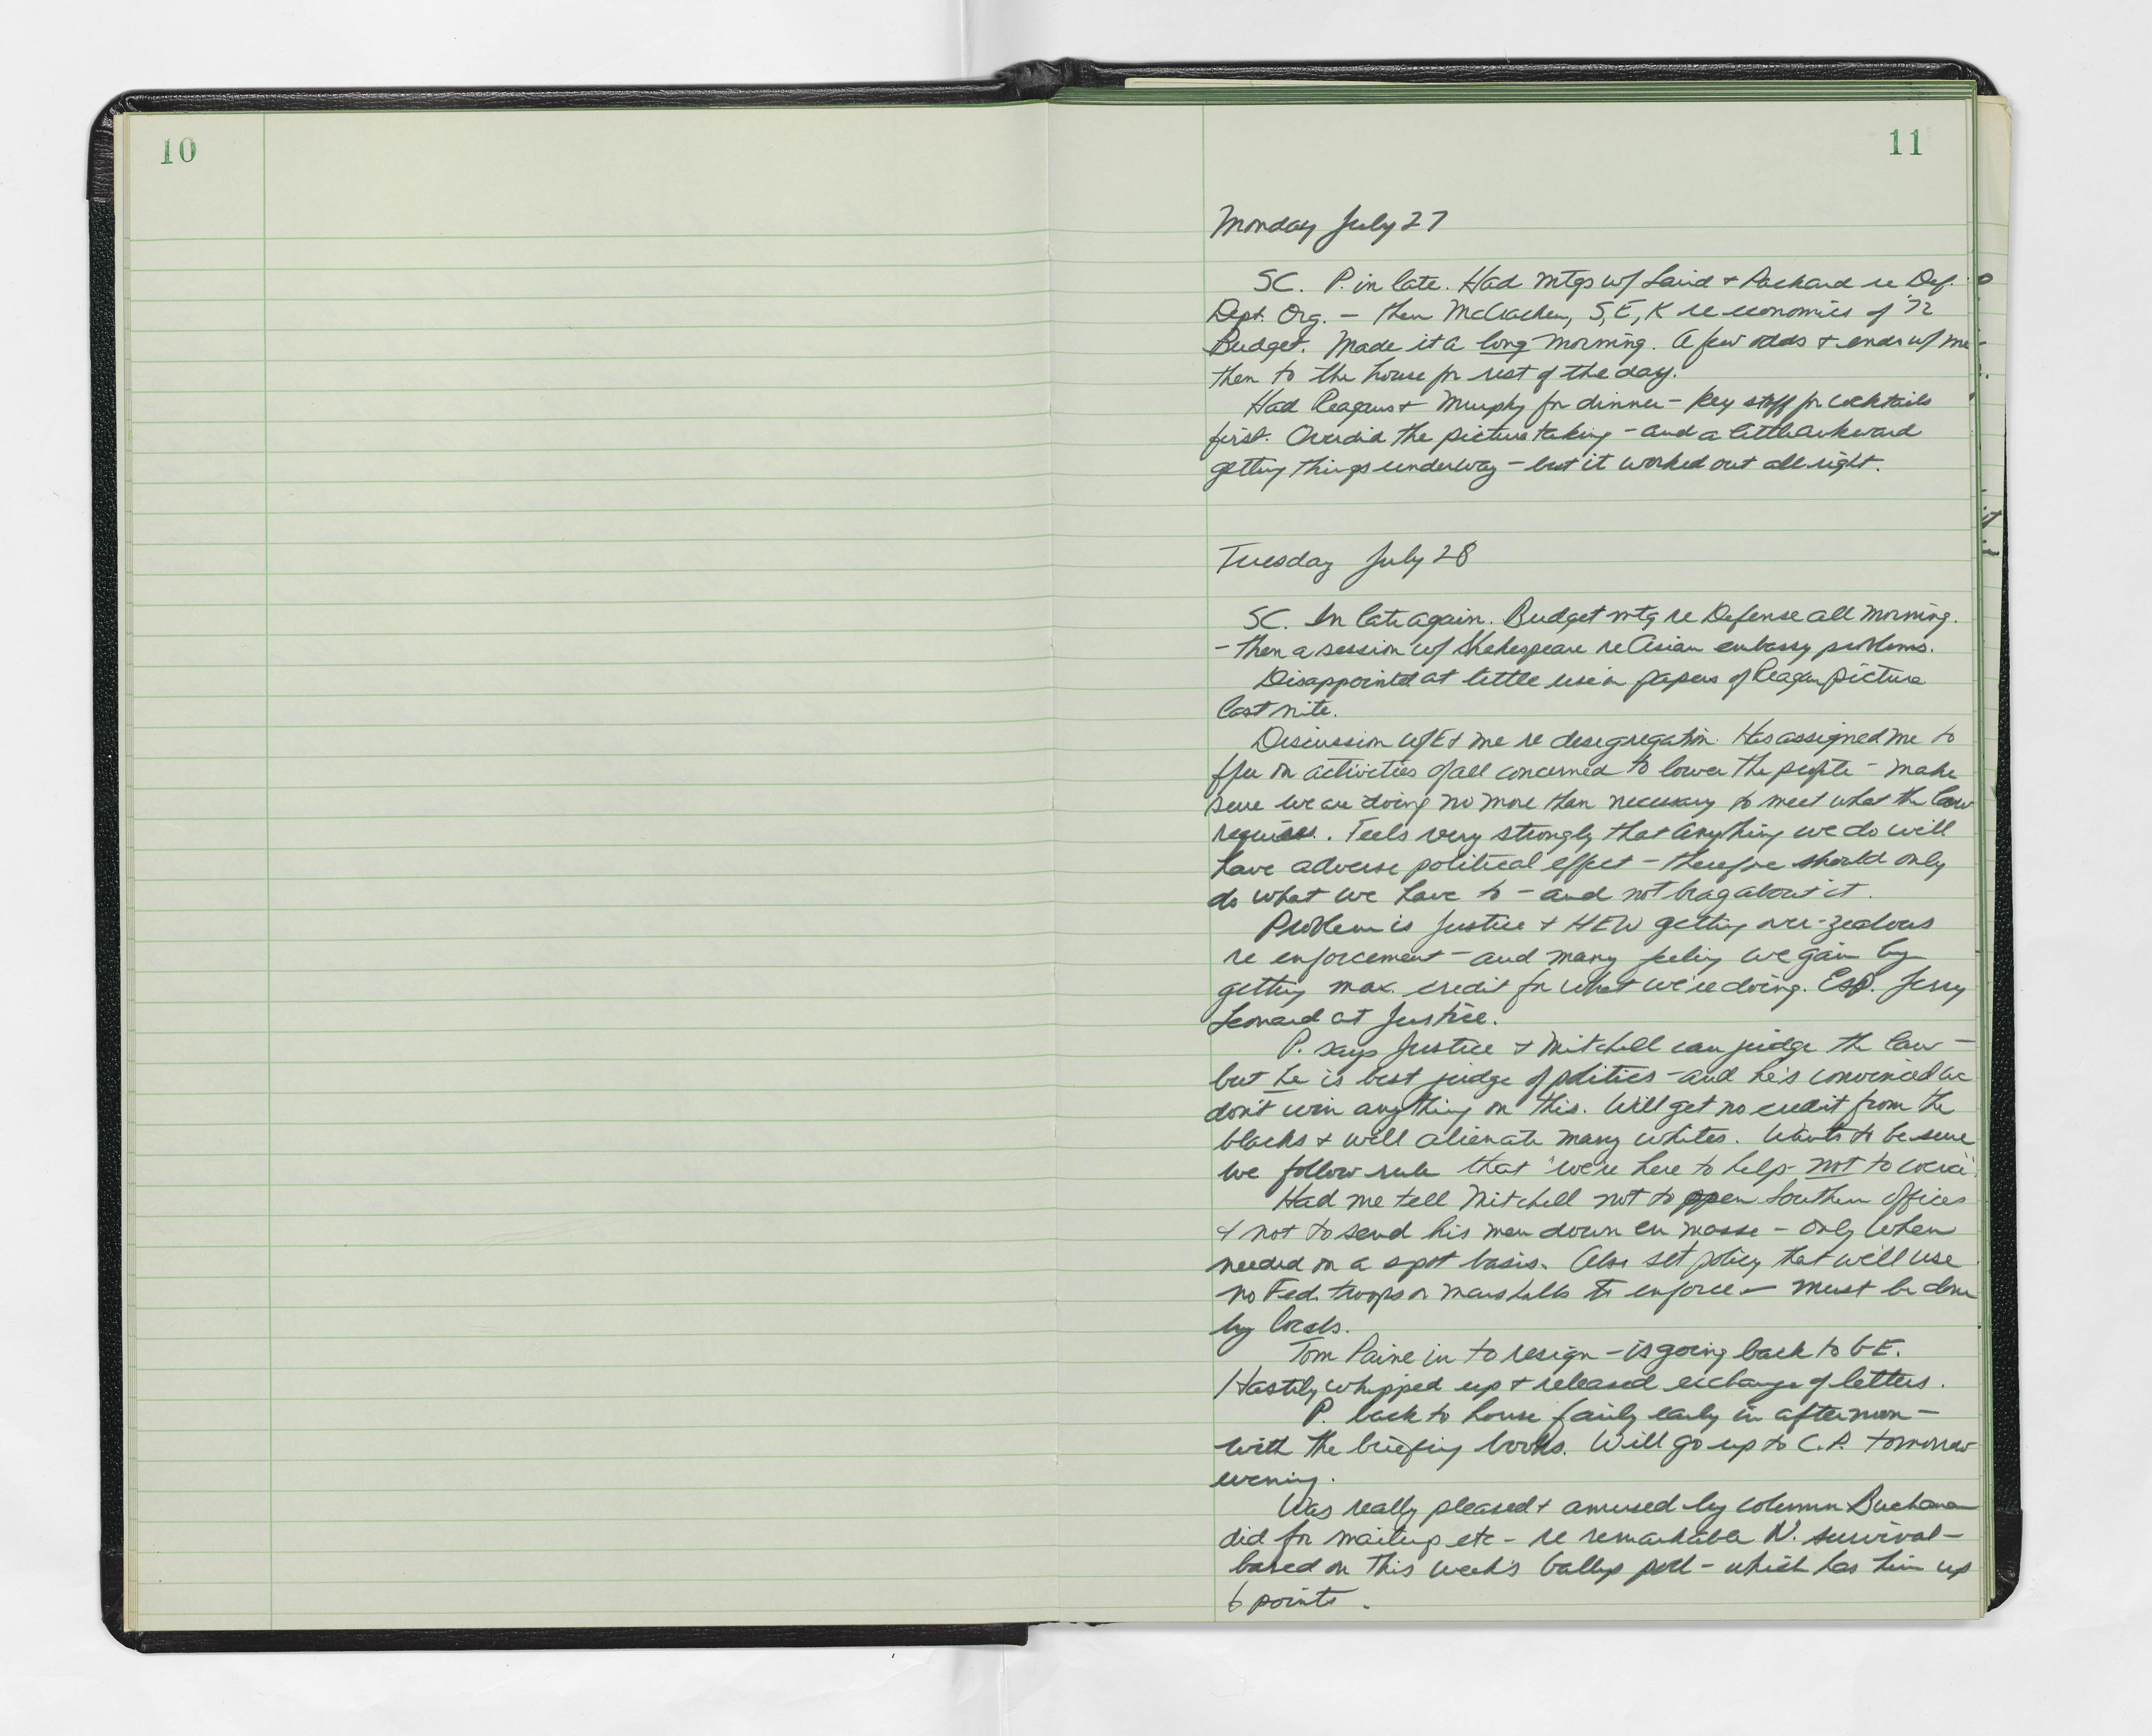 10
11
Monday July 27
SC. P. in late. Had mtgs w/ Laird + Packard re Def.
Dept. Org. – then McCracken, S, E, K re economics of '72
Budget. Made it a long morning. A few odds + ends w/ me –
then to the house for rest of the day.
Had Reagans + Murphy for dinner – key staff for cocktails
first. Overdid the picture taking – and a little awkward
getting things underway – but it worked out all right.
Tuesday July 28
SC. In late again. Budget mtg re Defense all morning.
– then a session w/ Shakespeare re Asian embassy problems.
Disappointed at little use in papers of Reagan picture
last nite.
Discussion w/ E + me re desegregation. Has assigned me to
ffu on activities of all concerned to lower the profile – make
sure we are doing no more than necessary to meet what the law
requires. Feels very strongly that anything we do will
have adverse political effect – therefore should only
do what we have to – and not brag about it.
Problem is Justice + HEW getting over-zealous
re enforcement – and many feeling we gain by
getting max. credit for what we're doing. Esp. Jerry
Leonard at Justice.
P. says Justice + Mitchell can judge the law –
but he is best judge of politics – and he's convinced we
don't win anything on this. Will get no credit from the
blacks + will alienate many whites. Wants to be sure
we follow rule that 'we're here to help – not to coerce'.
Had me tell Mitchell not to open Southern offices
+ not to send his men down en masse – only when
needed on a spot basis. Also set policy that we'll use
no Fed. troops or marshalls to enforce – must be done
by locals.
Tom Paine in to resign – is going back to GE.
Hastily whipped up + released exchange of letters.
P. back to house fairly early in afternoon –
with the briefing books. Will go up to C.P. tomorrow
evening.
Was really pleased + amused by column Buchanan
did for mailing etc – re remarkable N. survival –
based on this week's Gallup poll – which has him up
6 points.